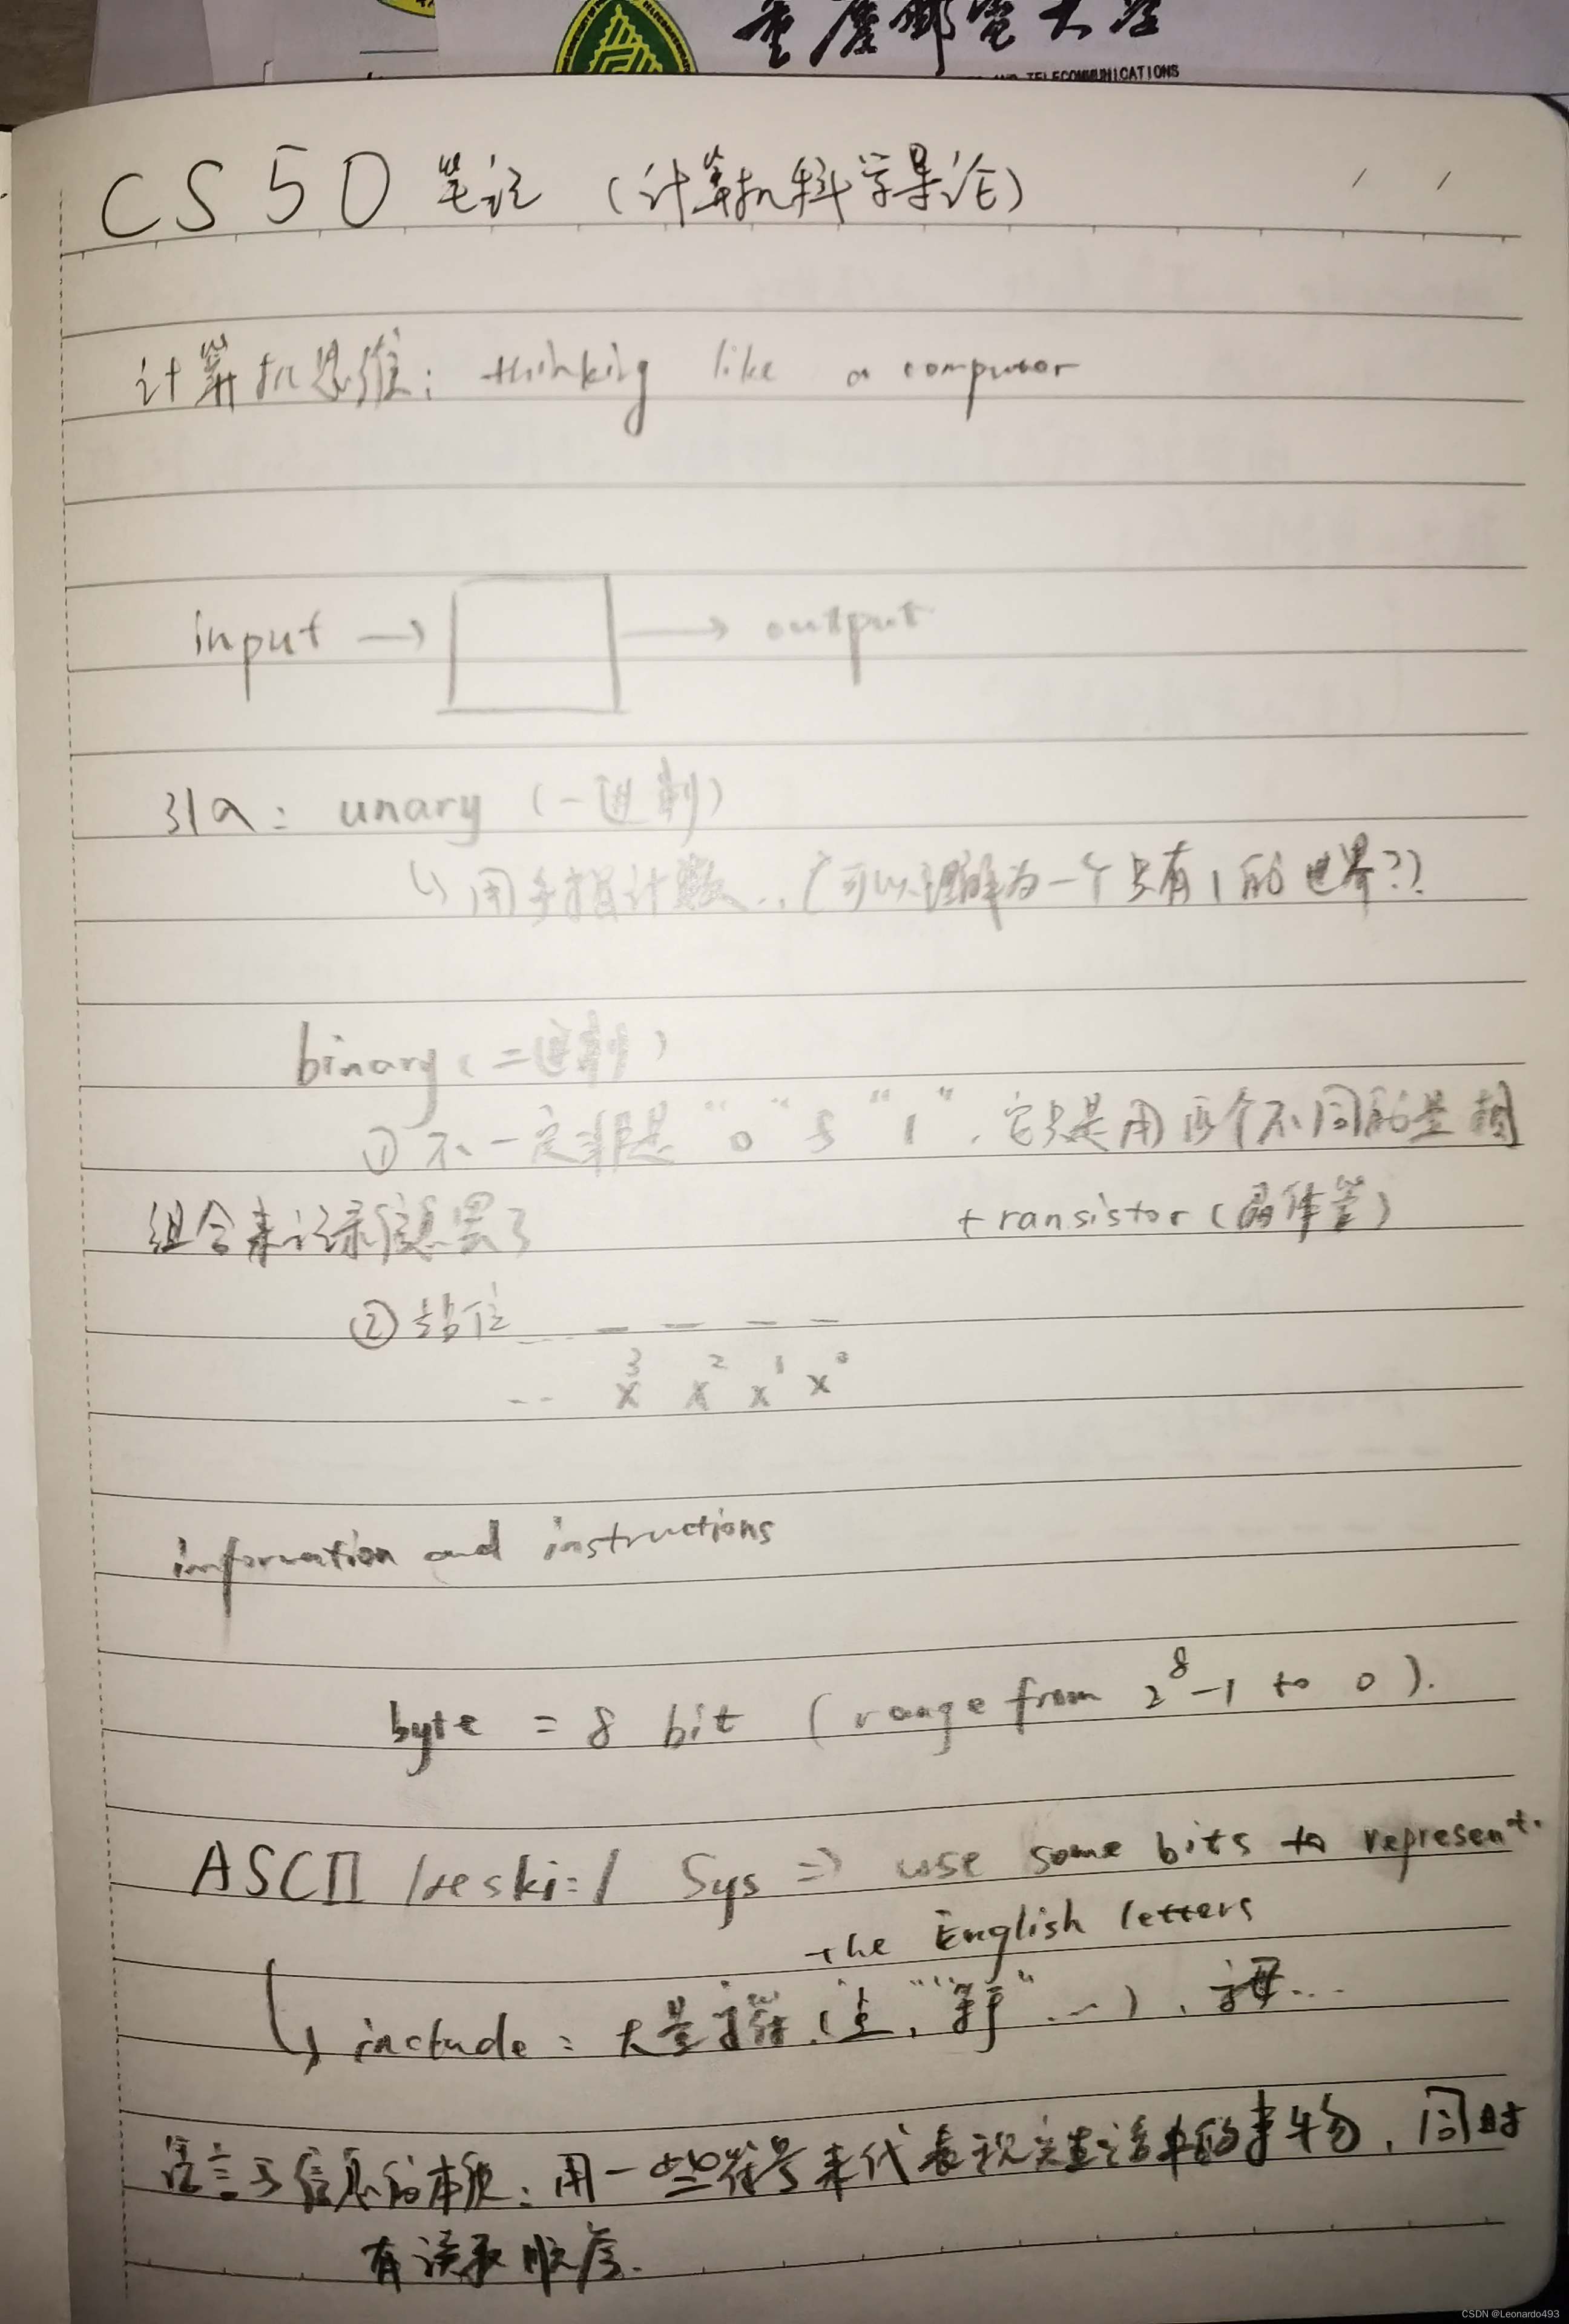 重慶郵電大學
AND TELECOMMUNICATIONS
CS50 笔记 (计算机科学导论)
计算机思维: thinking like a computer
input → → output
引入: unary (一进制)
↳ 用手指计数...(可以理解为一个只有1的世界??
binary (二进制)
① 不一定非是 "0" 与 "1", 它只是用两个不同的量相
组合来记录信息罢了
transistor (晶体管)
② 站位 ... — — — —
... x³ x² x¹ x⁰
information and instructions
byte = 8 bit (range from 2⁸-1 to 0).
ASCII /æski:/ Sys => use some bits to represent.
the English letters
↳ include: 大量字符
语言与信息的本质: 用一些符号来代表现实生活中的事物, 同时
有读取顺序.
CSDN @Leonardo493